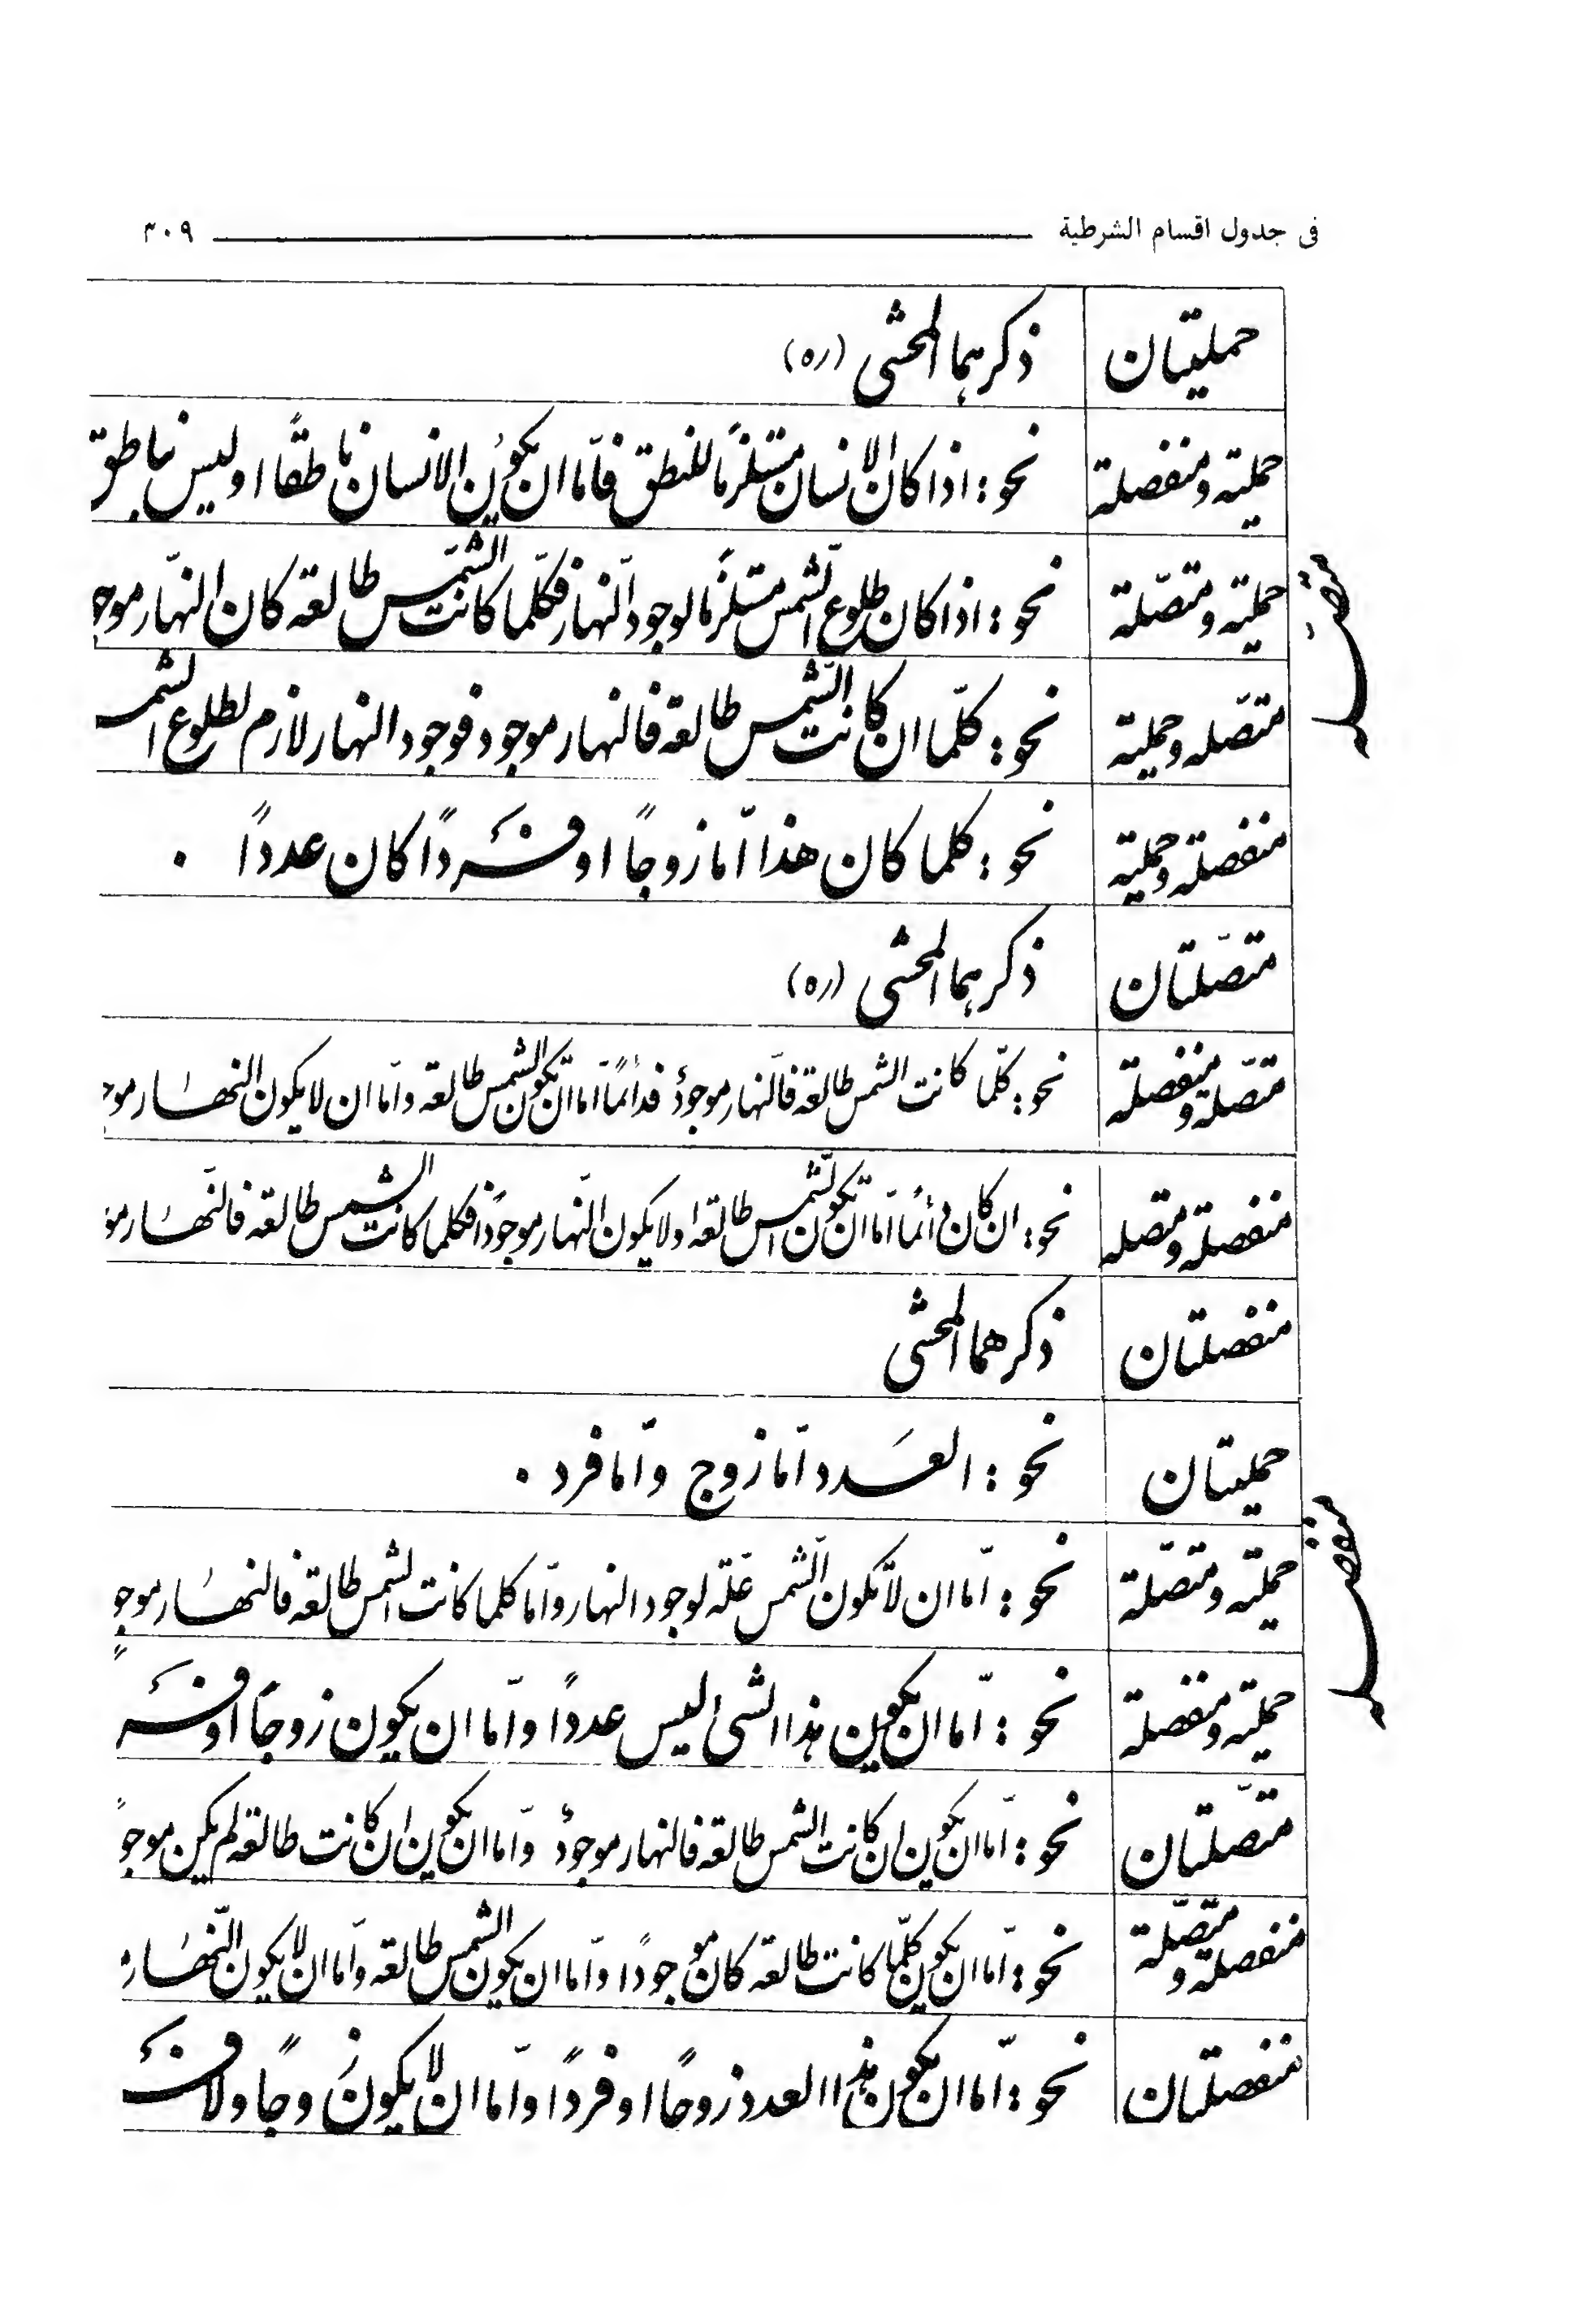 فى جدول اقسام الشرطية ٣٠٩
حمليتان ذكرهما المحشى (ره)
متصلة
حملية ومنفصلة نحو: اذا كان الانسان مستلزمًا للنطق فامّا ان يكون الانسان ناطقًا او ليس بناطق
حملية ومتصّلة نحو: اذا كان طلوع الشمس مستلزمًا لوجود النهار فكلّما كانت الشّمس طالعة كان النهّار موجو
متصّله وحملية نحو: كلّما ان كانت الشّمس طالعة فالنهار موجود فوجود النهار لازم لطلوع الشمس
منفصلة وحملية نحو: كلما كان هذا امّا زوجًا او فردًا كان عددًا .
متصّلتان ذكرهما المحشى (ره)
متصّلة ومنفصلة نحو: كلّما كانت الشمس طالعة فالنّهار موجودٌ فدائمًا امّا ان تكون الشمس طالعة وامّا ان لا يكون النهار موجو
منفصلة ومتصله نحو: ان كان دائمًا امّا ان تكون الشّمس طالعة او لا يكون النّهار موجودًا فكلما كانت الشمس طالعة فالنّهار مو
منفصلتان ذكرهما المحشى
حمليتان نحو: العدد امّا زوج وامّا فرد .
منفصلة
حمليّة ومتصّلة نحو: امّا ان لا تكون الشّمس علّة لوجود النهار وامّا كلما كانت الشمس طالعة فالنهار موجو
حملية ومنفصلة نحو: امّا ان يكون هذا الشئ ليس عددًا وامّا ان يكون زوجًا او فر
متصّلتان نحو: امّا ان يكون ان كانت الشمس طالعة فالنهار موجودٌ وامّا ان يكون ان كانت طالعة لم يكن موجو
منفصلة ومتصّلة نحو: امّا ان يكون كلّما كانت طالعة كان موجودًا وامّا ان يكون الشمس طالعة وامّا ان لا يكون النّهار
منفصلتان نحو: امّا ان يكون هذا العدد زوجًا او فردًا وامّا ان لا يكون زوجًا ولا فر